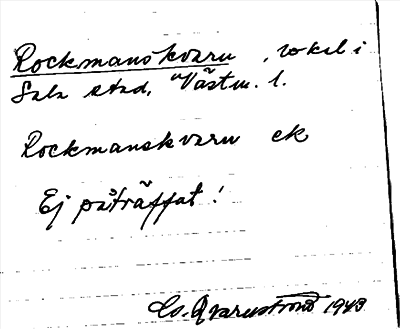 Rockmanskvarn, lokal i
Sala stad, Västm. l.
Rockmanskvarn ek
Ej påträffat!
Qvarnström 1943